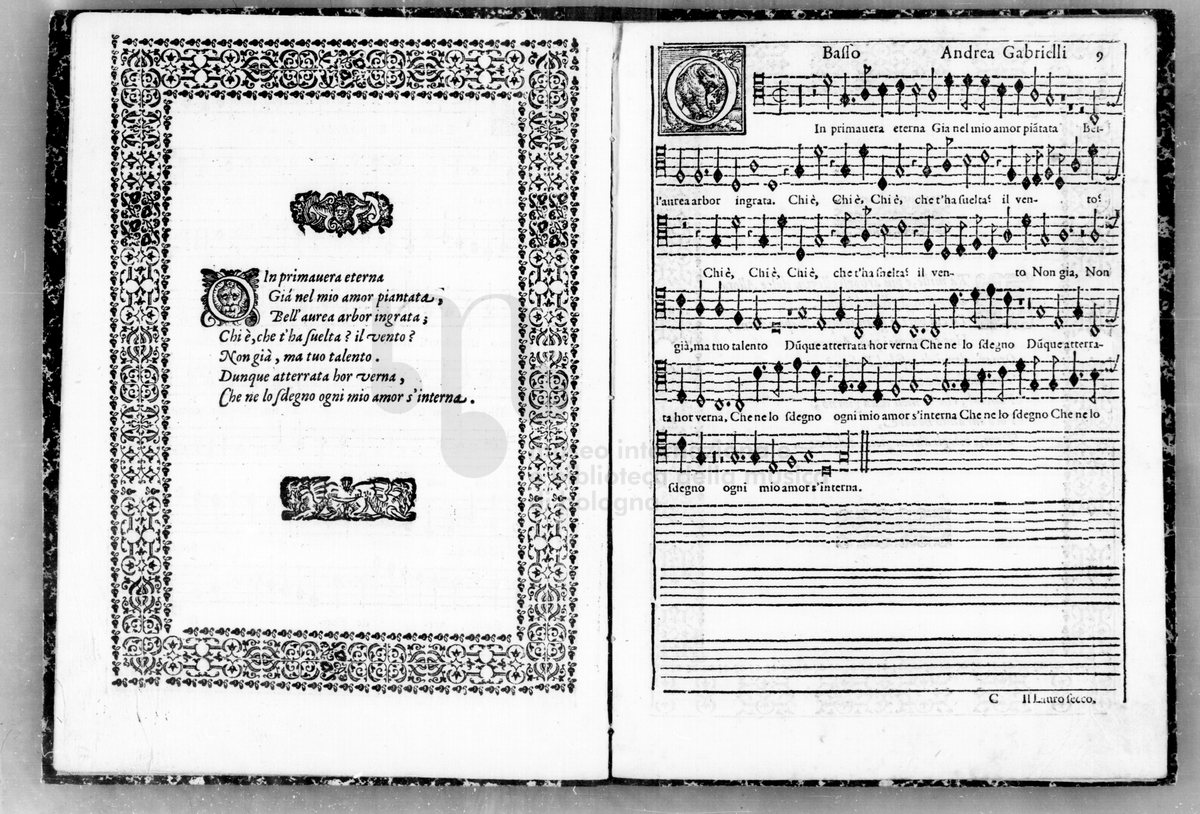 O In primauera eterna
Giá nel mio amor piantata,
Bell'aurea arbor ingrata;
Chi è, che t'ha suelta? il vento?
Non già, ma tuo talento.
Dunque atterrata hor verna,
Che ne lo sdegno ogni mio amor s'interna.
Basso Andrea Gabrielli 9
O In primauera eterna Gia nel mio amor piãtata Bel-
l'aurea arbor ingrata. Chi è, Chi è, Chi è, che t'ha suelta? il ven- to?
Chi è, Chi è, Chi è, che t'ha suelta? il ven- to Non gia, Non
già, ma tuo talento Dũque atterrata hor verna Che ne lo sdegno Dũque atterra-
ta hor verna, Che ne lo sdegno ogni mio amor s'interna Che ne lo sdegno Che ne lo
sdegno ogni mio amor s'interna.
C Il Lauro secco.
museo internazionale
e biblioteca della musica
di bologna